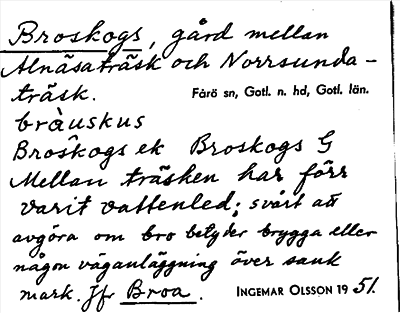 Broskogs, gård mellan
Alnäsaträsk och Norrsunda-
träsk. Fårö sn, Gotl. n. hd, Gotl. län.
bràuskus
Broskogs ek Broskogs G
Mellan träsken har förr
varit vattenled; svårt att
avgöra om bro betyder brygga eller
någon väganläggning över sank
mark. Jfr Broa. INGEMAR OLSSON 1951.